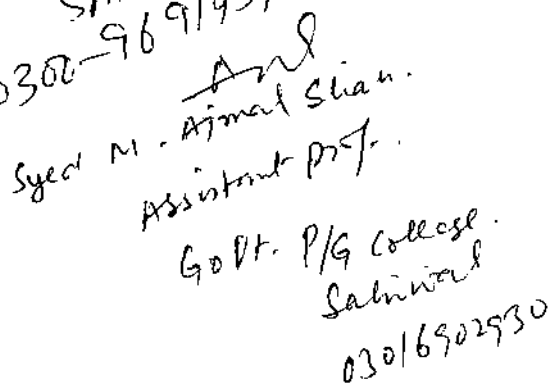 Syed M. Ajmal Shah.
Assistant Prof.
Govt. P/G College.
Sahiwal
03016902930